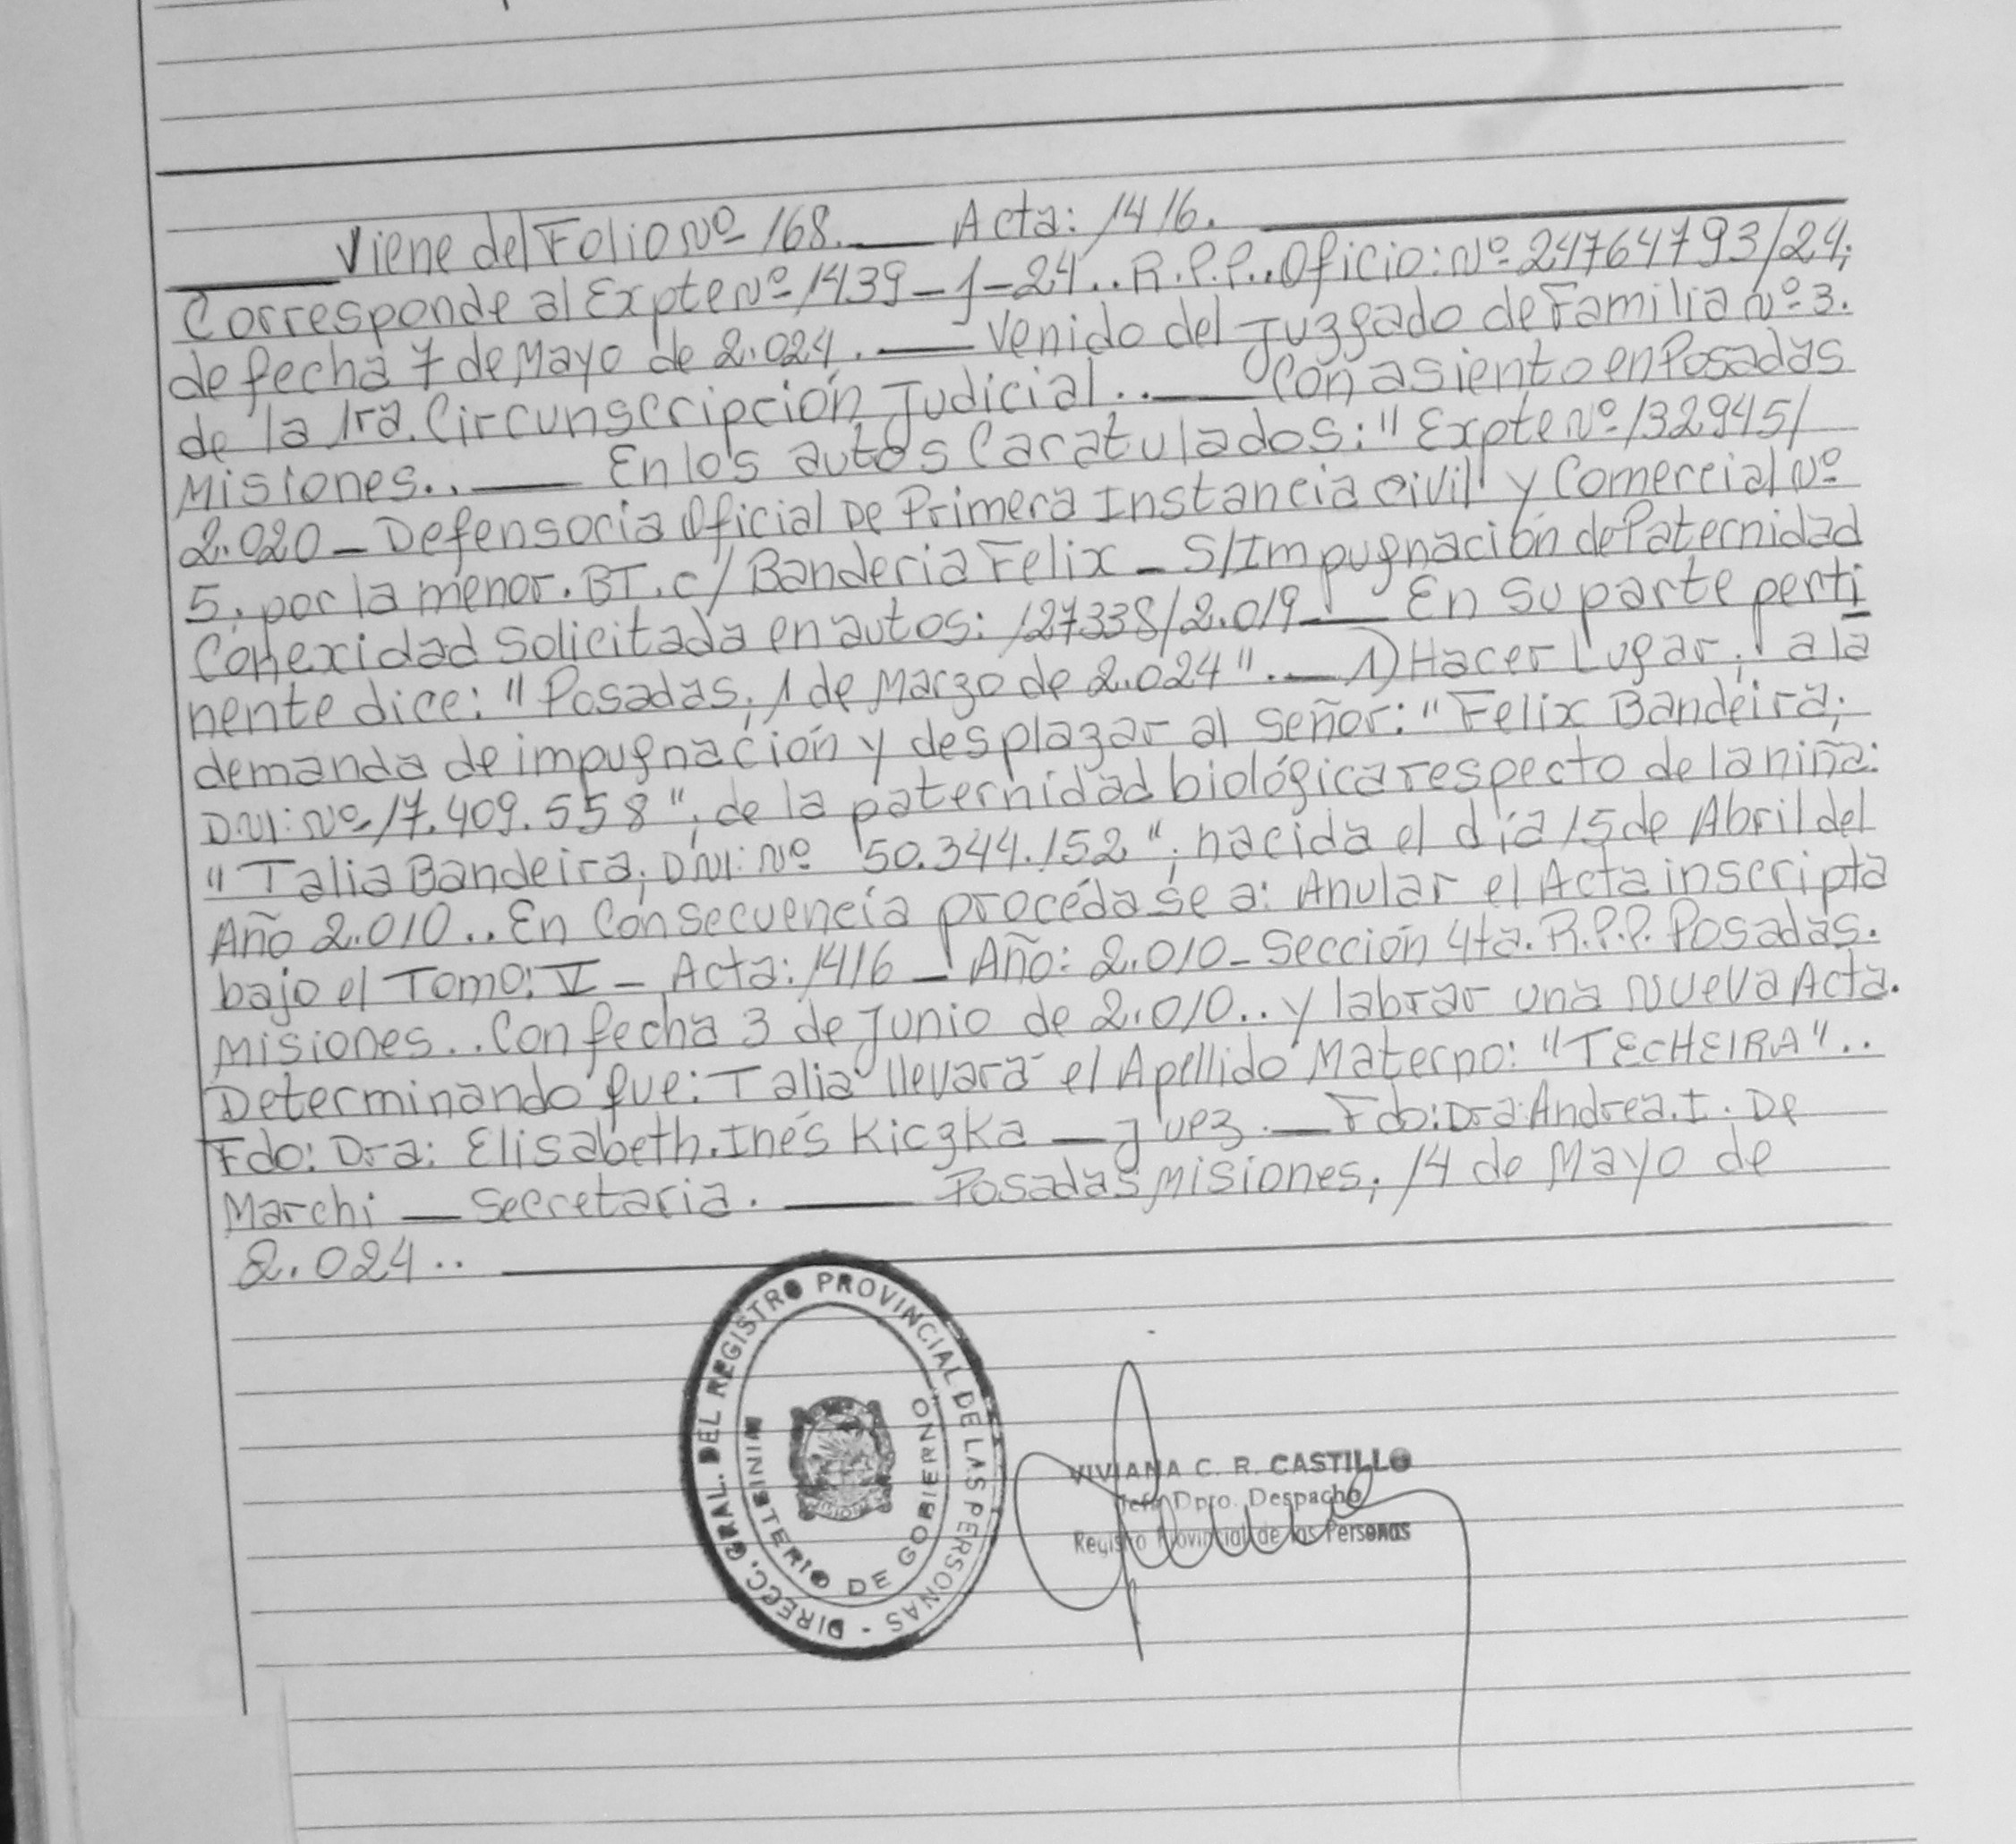 Viene del Folio Nº 168. Acta: 1416.
Corresponde al Expte Nº 1439-J-24.. R.P.P.. Oficio: Nº 24764793/24;
de fecha 7 de Mayo de 2.024. Venido del Juzgado de Familia Nº 3.
de la 1ra. Circunscripción Judicial.. Con asiento en Posadas
Misiones.. En los autos Caratulados: "Expte Nº 132945/
2.020 - Defensoria Oficial De Primera Instancia Civil y Comercial Nº
5; por la menor. BT. c/ Banderia Felix - S/Impugnación de Paternidad
Conexidad Solicitada en autos: 127338/2.019 En su parte perti
nente dice: "Posadas; 1 de Marzo de 2.024". 1) Hacer Lugar; a la
demanda de impugnación y desplazar al Señor: "Felix Bandeira;
DNI: Nº 17.409.558"; de la paternidad biológica respecto de la niña:
"Talia Bandeira; DNI: Nº 50.344.152"; nacida el día 15 de Abril del
Año 2.010.. En Consecuencia procédase a: Anular el Acta inscripta
bajo el Tomo: V - Acta: 1416 - Año: 2.010 - Sección 4ta. R.P.P. Posadas.
Misiones.. Con fecha 3 de Junio de 2.010.. y labrar una Nueva Acta.
Determinando que: Talia llevará el Apellido Materno: "TECHEIRA"..
Fdo: Dra: Elisabeth. Inés Kiczka - Juez. Fdo: Dra: Andrea. I. De
Marchi - Secretaria. Posadas Misiones; 14 de Mayo de
2.024..
DIRECC. GRAL. DEL REGISTRO PROVINCIAL DE LAS PERSONAS -
MINISTERIO DE GOBIERNO
VIVIANA C. R. CASTILLO
Jefa Dpto. Despacho
Registro Provincial de las Personas